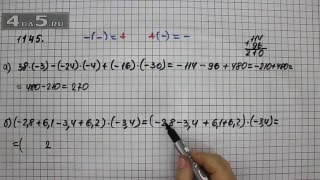 4DA5.RU
1145.
-(-) = + +(-) = -
+114
96
210
а) 38·(-3) - (-24)·(-4) + (-16)·(-30) = -114 - 96 + 480 = -210+480=
= 480 - 210 = 270
б) (-2,8 + 6,1 - 3,4 + 6,2)·(-3,4) = (-2,8 - 3,4 + 6,1+6,2)·(-3,4) =
= ( 2